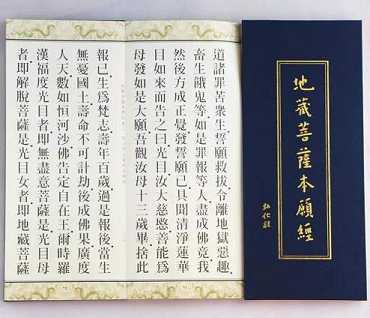 地藏菩薩本願經
弘化社
道諸罪苦衆生誓願救拔令離地獄惡趣
畜生餓鬼等如是罪報等人盡成佛竟我
然後方成正覺發誓願已具聞清淨蓮華
目如來而告之曰光目汝大慈愍善能爲
母發如是大願吾觀汝母十三歲畢捨此
報已生爲梵志壽年百歲過是報後當生
無憂國土壽命不可計劫後成佛果廣度
人天數如恒河沙佛告定自在王爾時羅
漢福度光目者即無盡意菩薩是光目母
者即解脫菩薩是光目女者即地藏菩薩